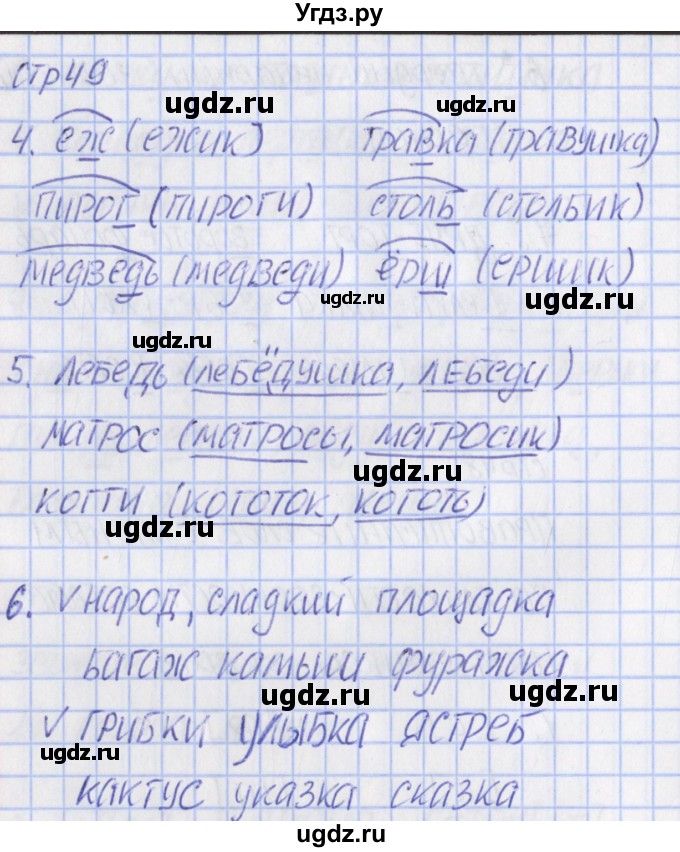 Угдз.ру
стр 49
ugdz.ru
4. ёж (ёжик) травка (травушка)
ugdz.ru
пирог (пироги) столб (столбик)
медведь (медведи) ёрш (ёршик)
ugdz.ru ugdz.ru
ugdz.ru
5. лебедь (лебёдушка, лебеди)
матрос (матросы, матросик)
ugdz.ru
когти (коготок, коготь)
ugdz.ru
6. √ народ, сладкий площадка
багаж камыш фуражка
ugdz.ru ugdz.ru
√ грибки улыбка ястреб
ugdz.ru
кактус указка сказка
ugdz.ru